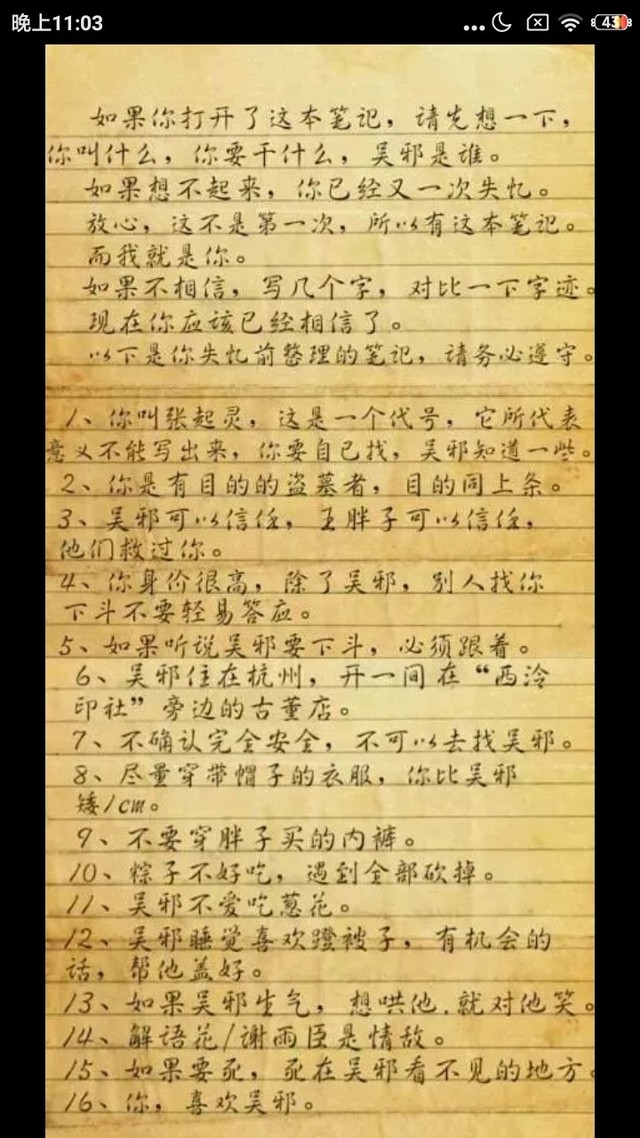 晚上11:03
43
如果你打开了这本笔记，请先想一下，
你叫什么，你要干什么，吴邪是谁。
如果想不起来，你已经又一次失忆。
放心，这不是第一次，所以有这本笔记。
而我就是你。
如果不相信，写几个字，对比一下字迹。
现在你应该已经相信了。
以下是你失忆前整理的笔记，请务必遵守。
1、你叫张起灵，这是一个代号，它所代表
意义不能写出来，你要自己找，吴邪知道一些。
2、你是有目的的盗墓者，目的同上条。
3、吴邪可以信任，王胖子可以信任，
他们救过你。
4、你身价很高，除了吴邪，别人找你
下斗不要轻易答应。
5、如果听说吴邪要下斗，必须跟着。
6、吴邪住在杭州，开一间在“西泠
印社”旁边的古董店。
7、不确认完全安全，不可以去找吴邪。
8、尽量穿带帽子的衣服，你比吴邪
矮1cm。
9、不要穿胖子买的内裤。
10、粽子不好吃，遇到全部砍掉。
11、吴邪不爱吃葱花。
12、吴邪睡觉喜欢蹬被子，有机会的
话，帮他盖好。
13、如果吴邪生气，想哄他.就对他笑。
14、解语花/谢雨臣是情敌。
15、如果要死，死在吴邪看不见的地方。
16、你，喜欢吴邪。